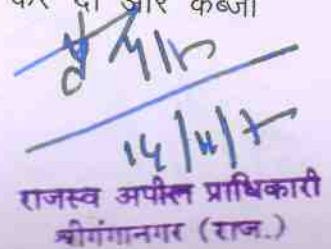 कर दी और कब्जा
14/11/
राजस्व अपील प्राधिकारी
श्रीगंगानगर (राज.)